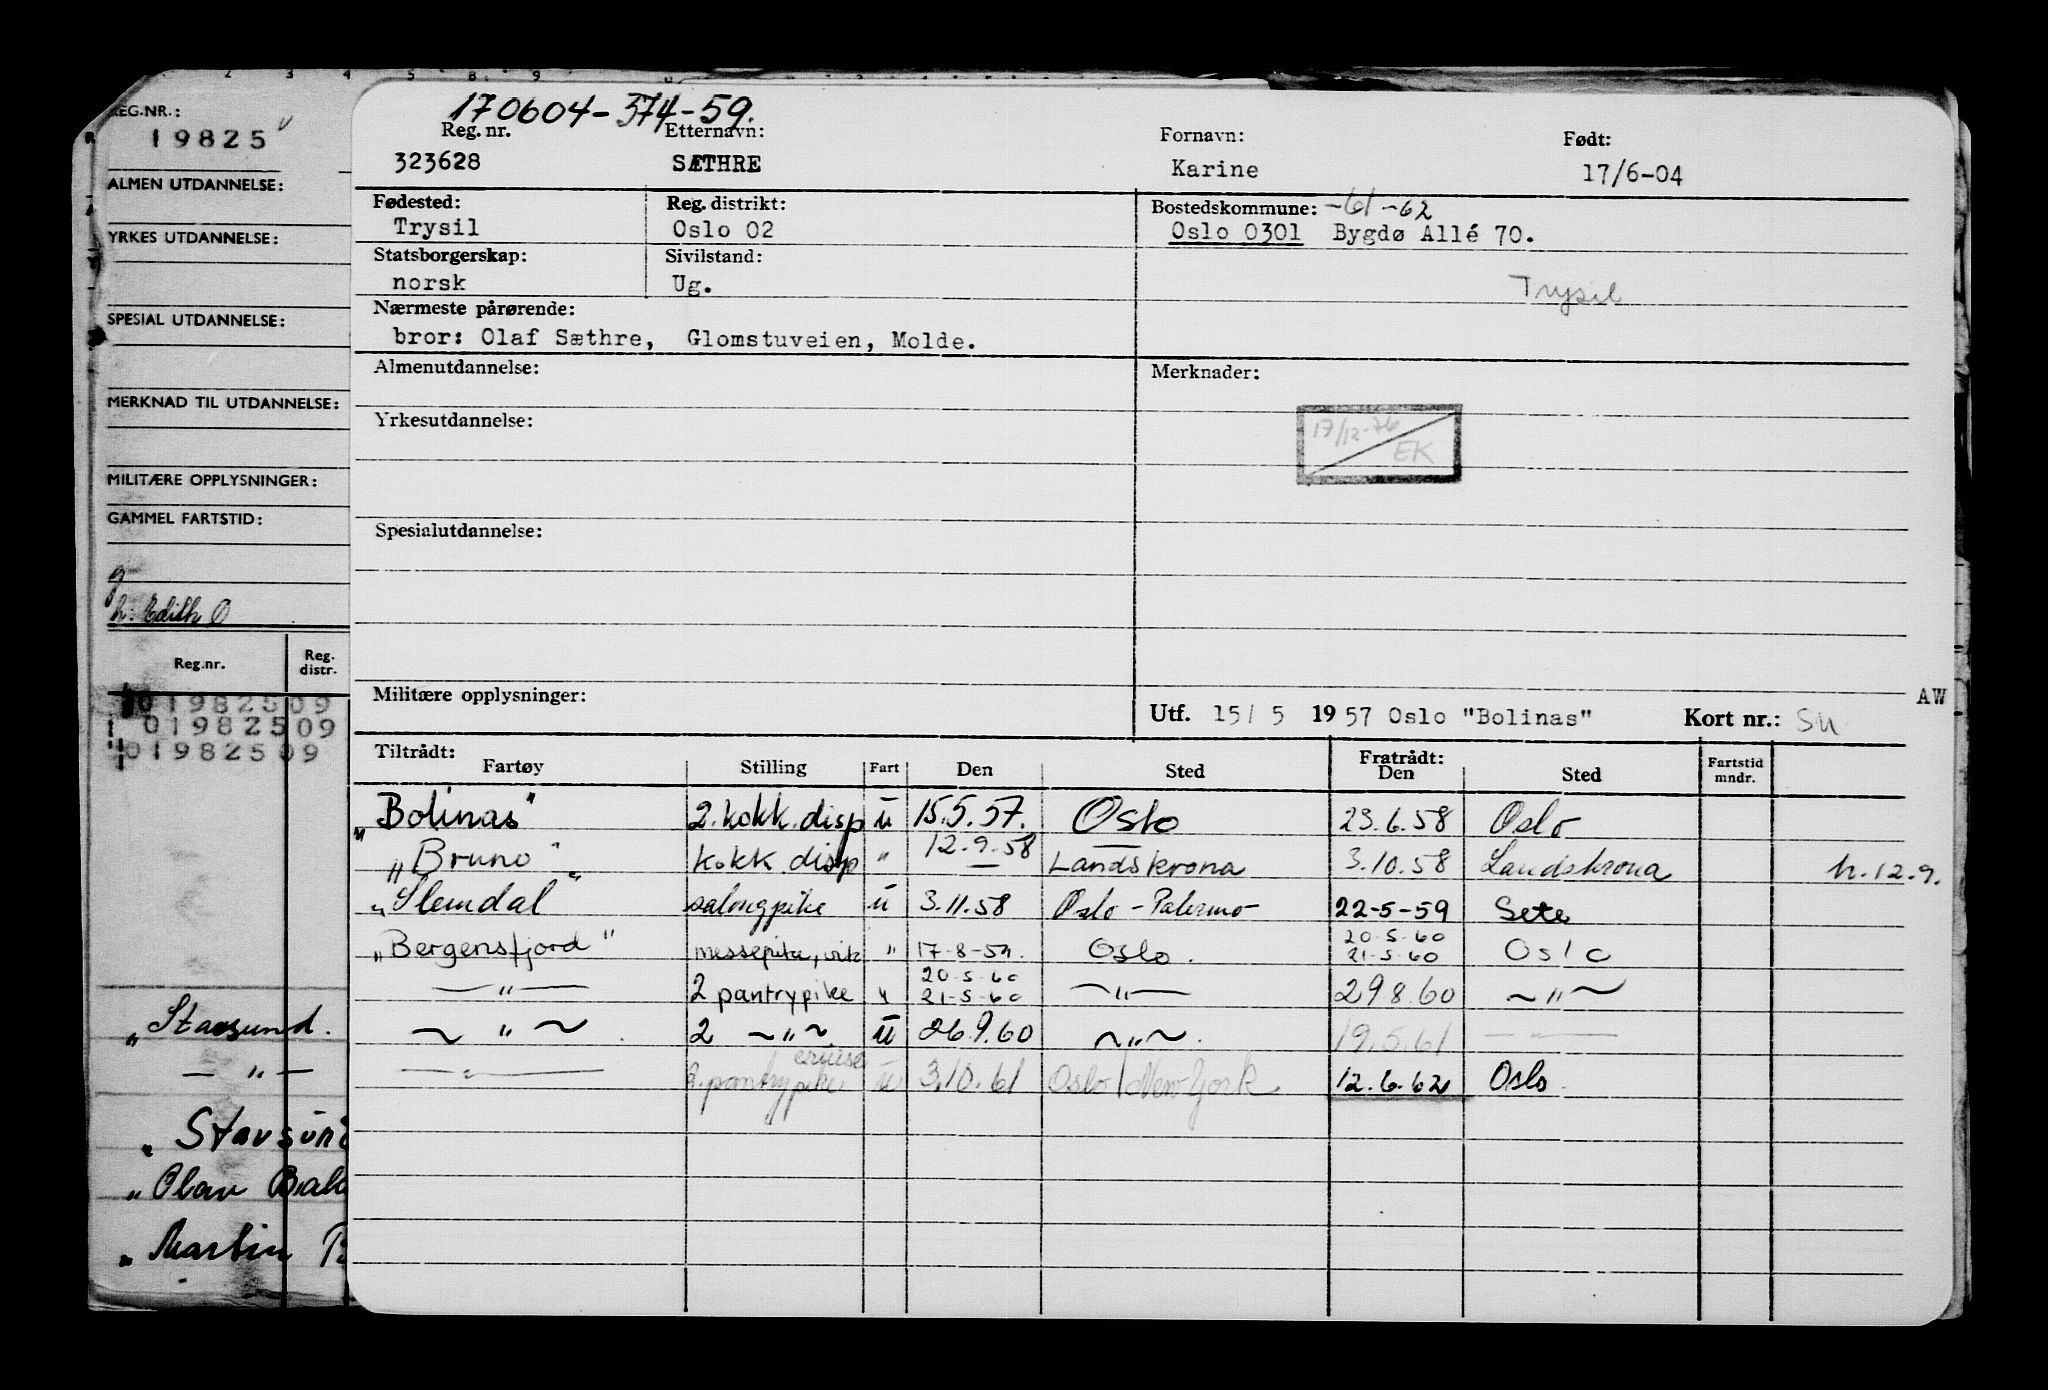 2 3 4 5 8 9
REG.NR.:
19825
ALMEN UTDANNELSE:
YRKES UTDANNELSE:
SPESIAL UTDANNELSE:
MERKNAD TIL UTDANNELSE:
MILITÆRE OPPLYSNINGER:
GAMMEL FARTSTID:
g
h: Edith O
Reg.nr. Reg. distr.
01982509
01982509
01982509
„Stavsund.
— " —
„Stavsund
„Olav Bakk
„Martin
170604-574-59.
Reg. nr. Etternavn: Fornavn: Født:
323628 SÆTHRE Karine 17/6-04
Fødested: Reg. distrikt: Bostedskommune: -61-62
Trysil Oslo 02 Oslo 0301 Bygdø Allé 70.
Statsborgerskap: Sivilstand:
norsk Ug. Trysil
Nærmeste pårørende:
bror: Olaf Sæthre, Glomstuveien, Molde.
Almenutdannelse: Merknader:
Yrkesutdannelse: 17/12-76 EK
Spesialutdannelse:
Militære opplysninger: AW
Utf. 15/5 1957 Oslo "Bolinas" Kort nr.: Su
Tiltrådt: Fratrådt:
Fartøy Stilling Fart Den Sted Den Sted Fartstid mndr.
„Bolinas" 2.kokk.disp u 15.5.57. Oslo 23.6.58 Oslo
„Bruno" kokk disp " 12.9.58 Landskrona 3.10.58 Landskrona h.12.9.
„Slemdal salongpike u 3.11.58 Oslo-Palermo 22-5-59 Sete
„Bergensfjord" messepike, vik " 17-8-59. Oslo. 20-5-60 21-5-60 Oslo
— " — 2 pantrypike " 20-5-60 21-5-60 — " — 29 8.60 ~ " ~
~ " ~ 2 ~ " ~ u 26.9.60 ~ " ~. 19.5.61 — " —
— " — 2.pantrypike cruise u 3.10.61 Oslo/New York 12.6.62 Oslo.